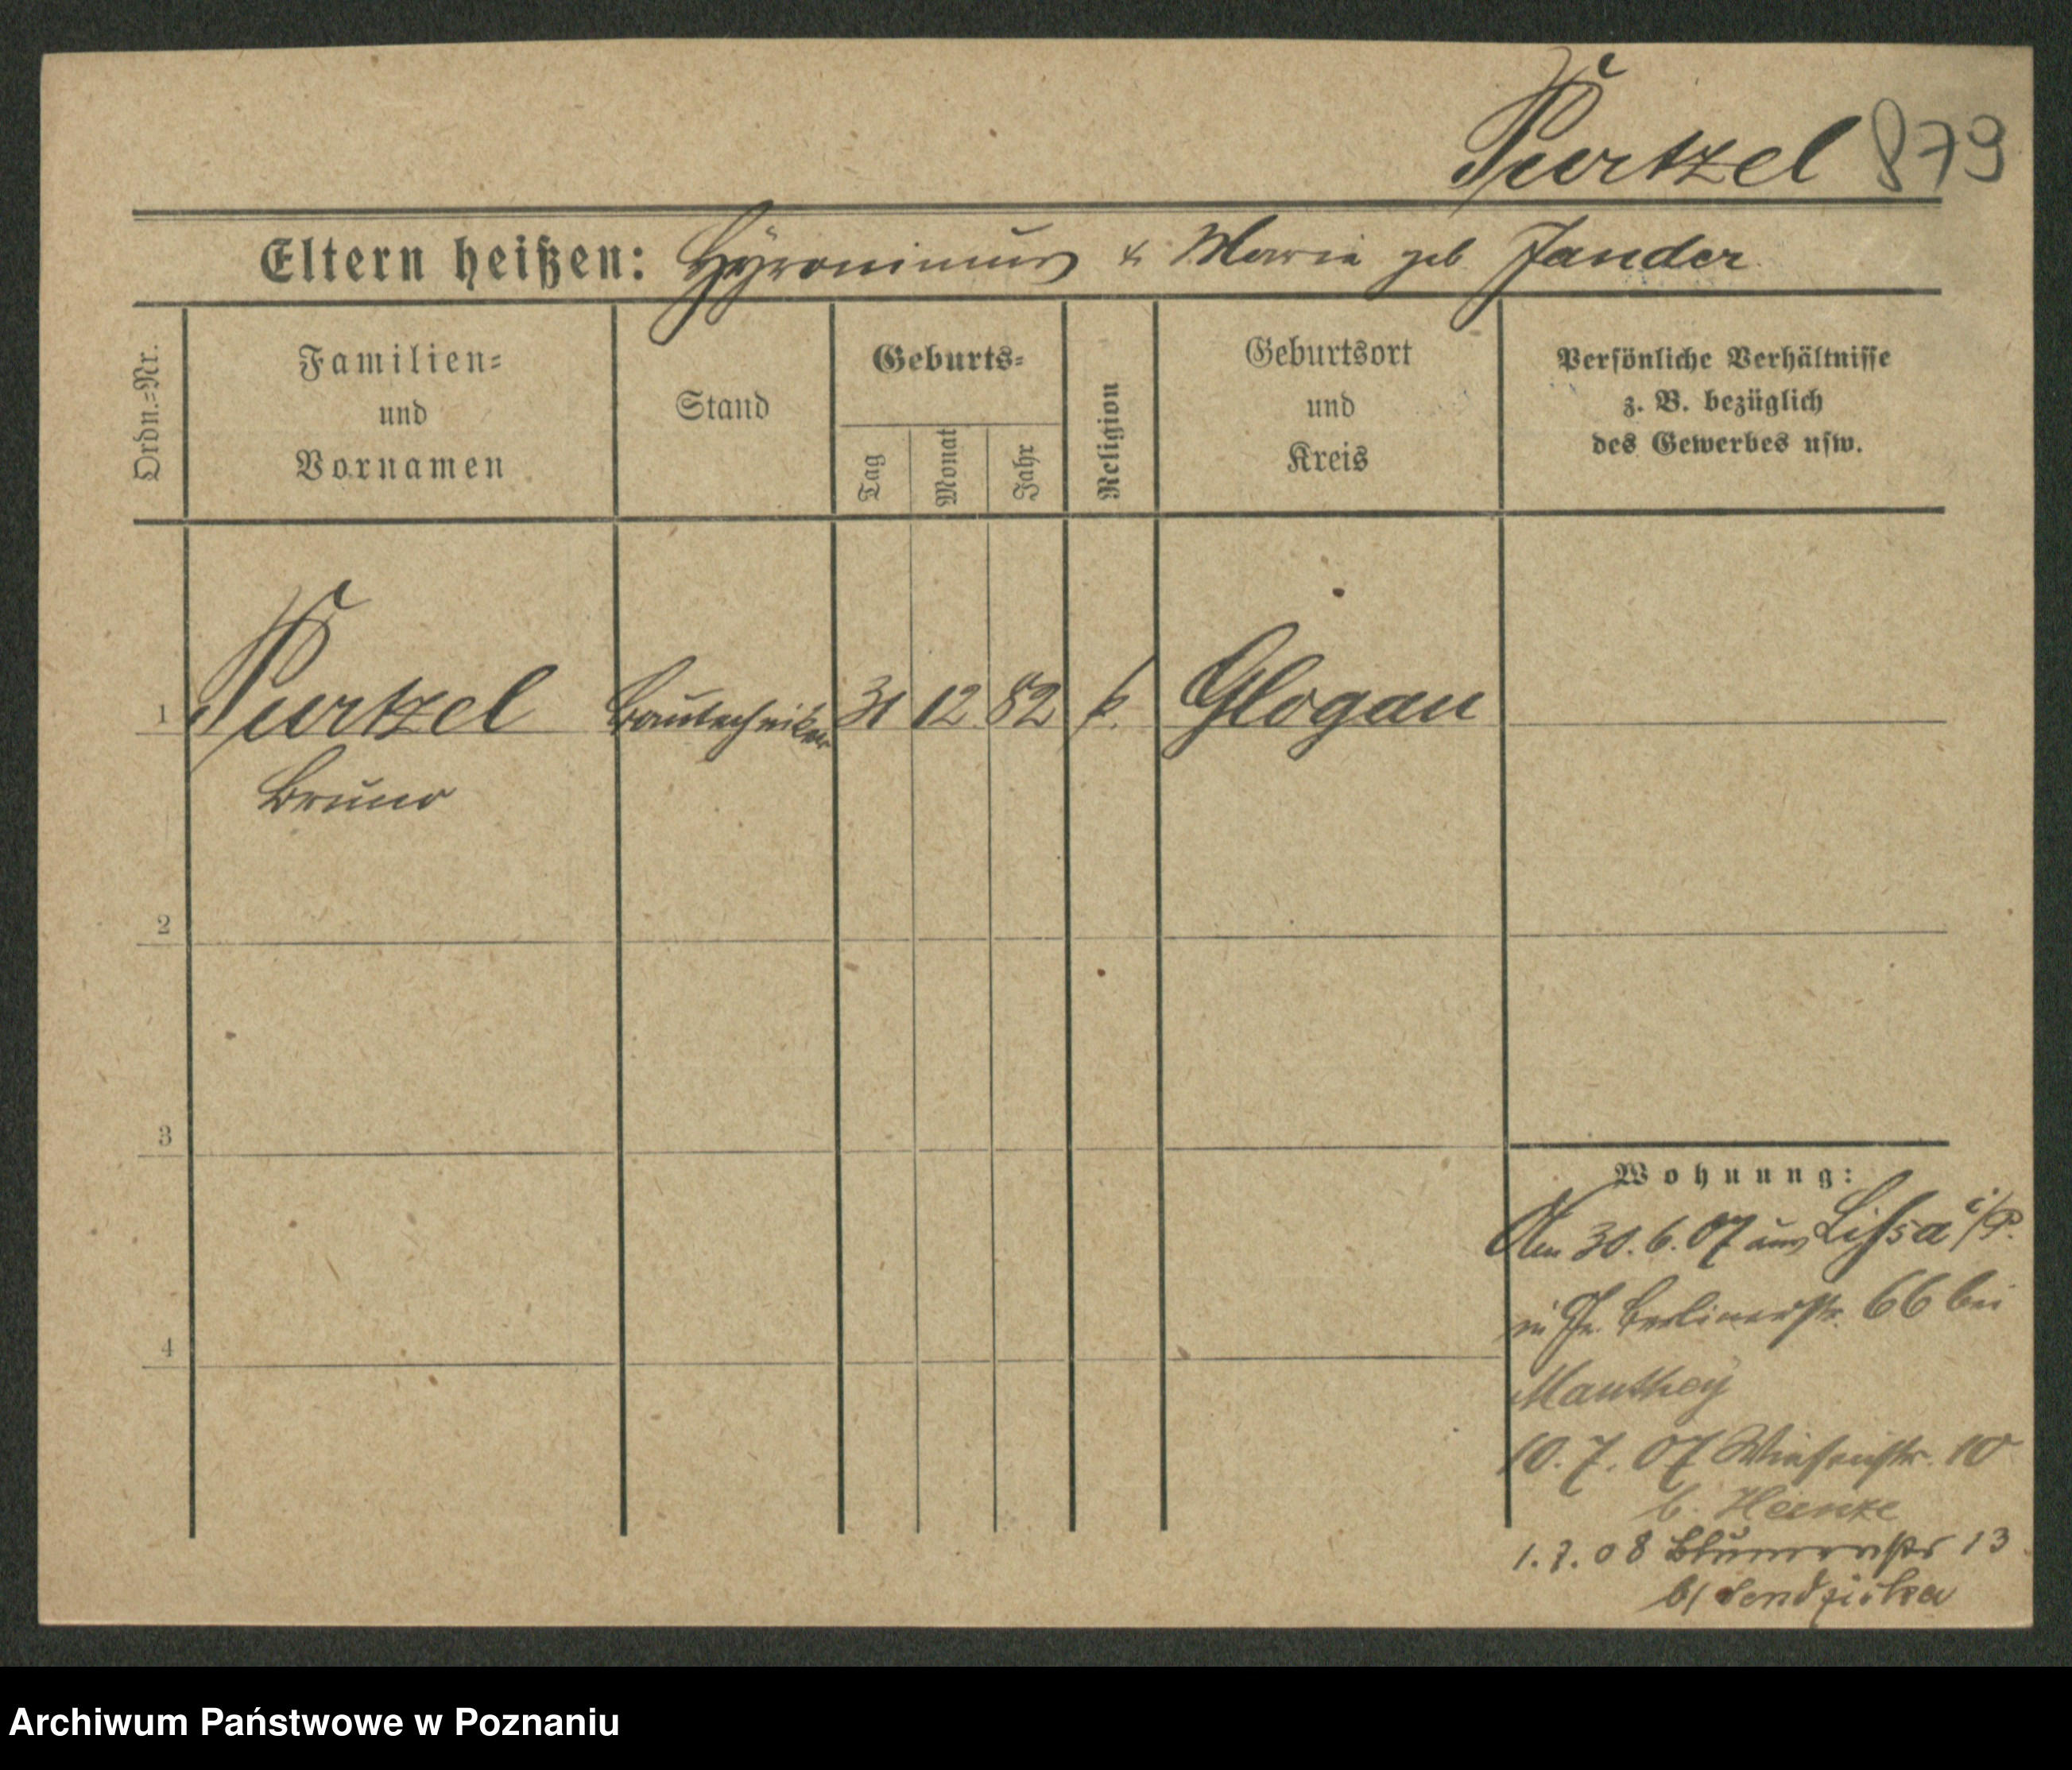 Purtzel 879
Eltern heißen: Hyronimus & Marie geb. Jander
Ordn.-Nr.
Familien-
und
Vornamen
Stand
Geburts-
Tag
Monat
Jahr
Religion
Geburtsort
und
Kreis
Persönliche Verhältnisse
z. B. bezüglich
des Gewerbes usw.
1 Purtzel Bautechniker 31 12 82 k. Glogau
Bruno
2
3
4
Wohnung:
Am 30.6.07 aus Lissa i/P.
in Berlinerstr. 66 bei
Manthey
10.7.07 Wiesenstr. 10
b. Heinze
1.7.08 Blumenstr 13
b/
Archiwum Państwowe w Poznaniu